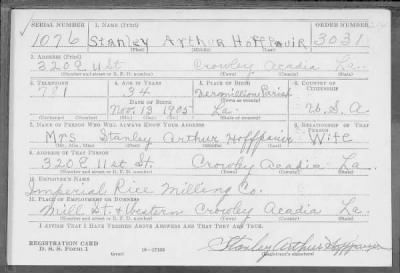 SERIAL NUMBER 1. NAME (Print) ORDER NUMBER
1076 Stanley Arthur Hoffpauir 3031
(First) (Middle) (Last)
2. ADDRESS (Print)
320 E 11 St Crowley Acadia La.
(Number and street or R. F. D. number) (Town) (County) (State)
3. TELEPHONE 4. AGE IN YEARS 5. PLACE OF BIRTH 6. COUNTRY OF CITIZENSHIP
781 34 Vermillion Parish
DATE OF BIRTH (Town or county)
Nov. 13 1905 La. U. S. A
(Mo.) (Day) (Yr.) (State or country)
7. NAME OF PERSON WHO WILL ALWAYS KNOW YOUR ADDRESS 8. RELATIONSHIP OF THAT PERSON
Mrs Stanley Arthur Hoffpauir Wife
(Mr., Mrs., Miss) (First) (Middle) (Last)
9. ADDRESS OF THAT PERSON
320 E 11 st St. Crowley Acadia La.
(Number and street or R. F. D. number) (Town) (County) (State)
10. EMPLOYER'S NAME
Imperial Rice Milling Co.
11. PLACE OF EMPLOYMENT OR BUSINESS
Mill St. & Western Crowley Acadia La.
(Number and street or R. F. D. number) (Town) (County) (State)
I AFFIRM THAT I HAVE VERIFIED ABOVE ANSWERS AND THAT THEY ARE TRUE.
REGISTRATION CARD
D. S. S. Form 1 (over) 16-17105 Stanley Arthur Hoffpauir
(Registrant's signature)